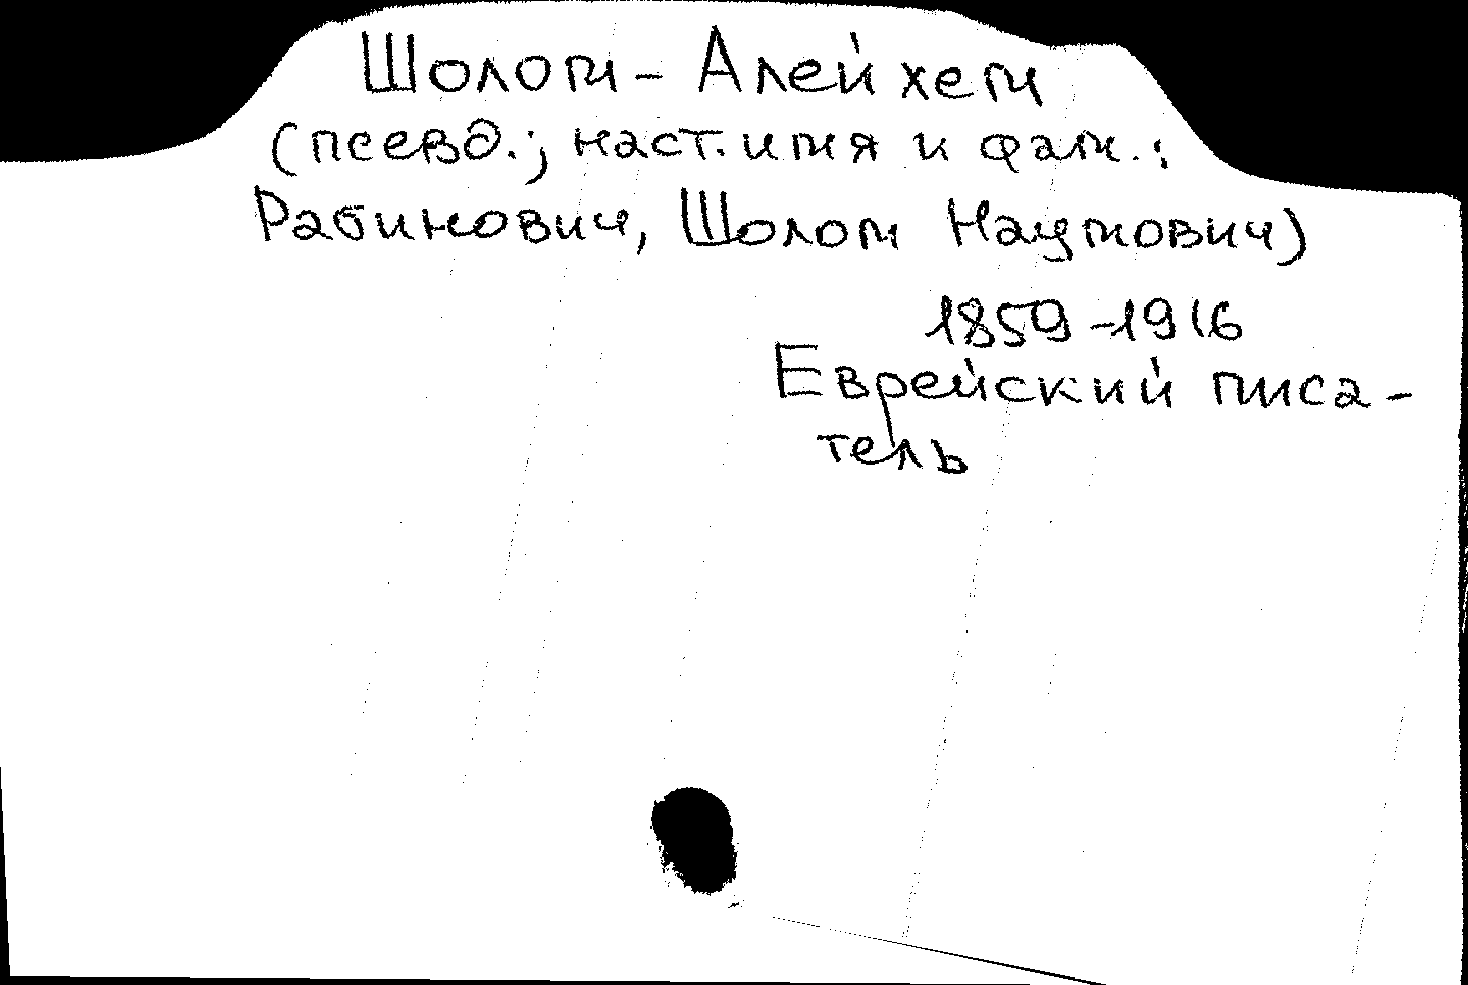 Шолом-Алейхем
(псевд.; наст. имя и фам.:
Рабинович, Шолом Наумович)
1859-1916
Еврейский писа-
тель